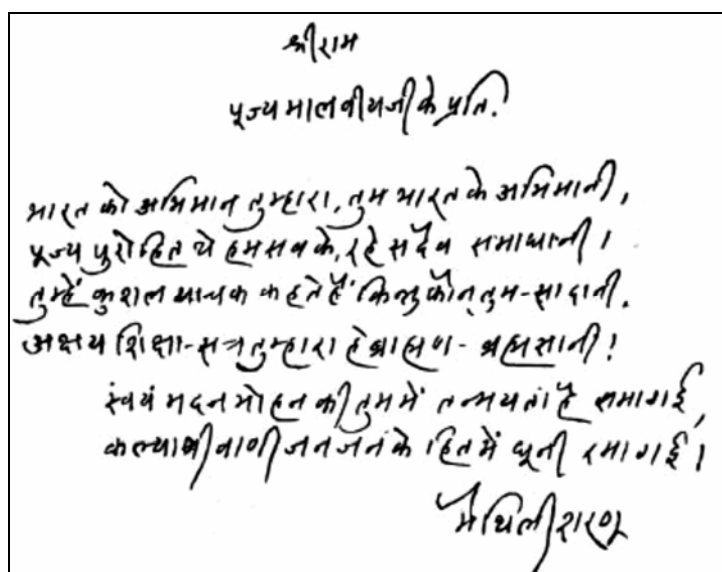 श्रीराम
पूज्य मालवीयजी के प्रति.
भारत को अभिमान तुम्हारा, तुम भारत के अभिमानी,
पूज्य पुरोहित थे हम सबके, रहे सदैव समाधानी।
तुम्हें कुशल याचक कहते हैं किन्तु कौन तुम-सा दानी,
अक्षय शिक्षा-सत्र तुम्हारा हे ब्राह्मण-ब्रह्मज्ञानी!
स्वयं मदन मोहन की तुममें तन्मयता है समा गई,
कल्याणी वाणी जन जन के हित में धूनी रमा गई।
मैथिलीशरण